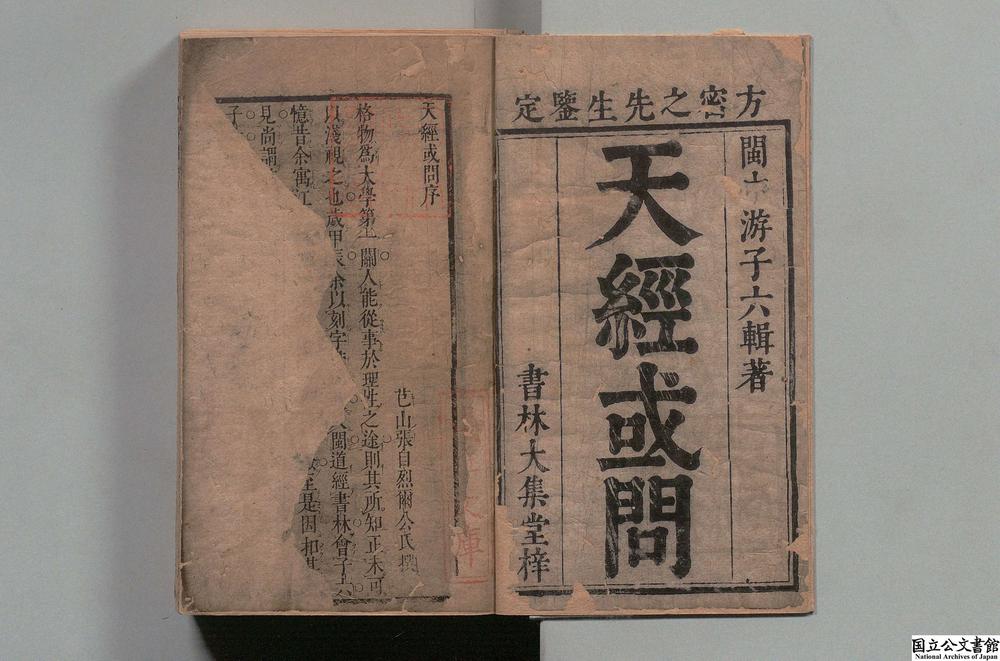 方密之先生鑒定
閩 游子六輯著
天經或問
書林大集堂梓
天經或問序
芑山張自烈爾公氏撰
格物爲大學第 關人能從事於理性之途則其所知正未可
以淺視之也歲甲辰余以刻字 閩道經書林會子六
憶昔余寓江 是因扣其
見尚謂
子
国立公文書館
National Archives of Japan